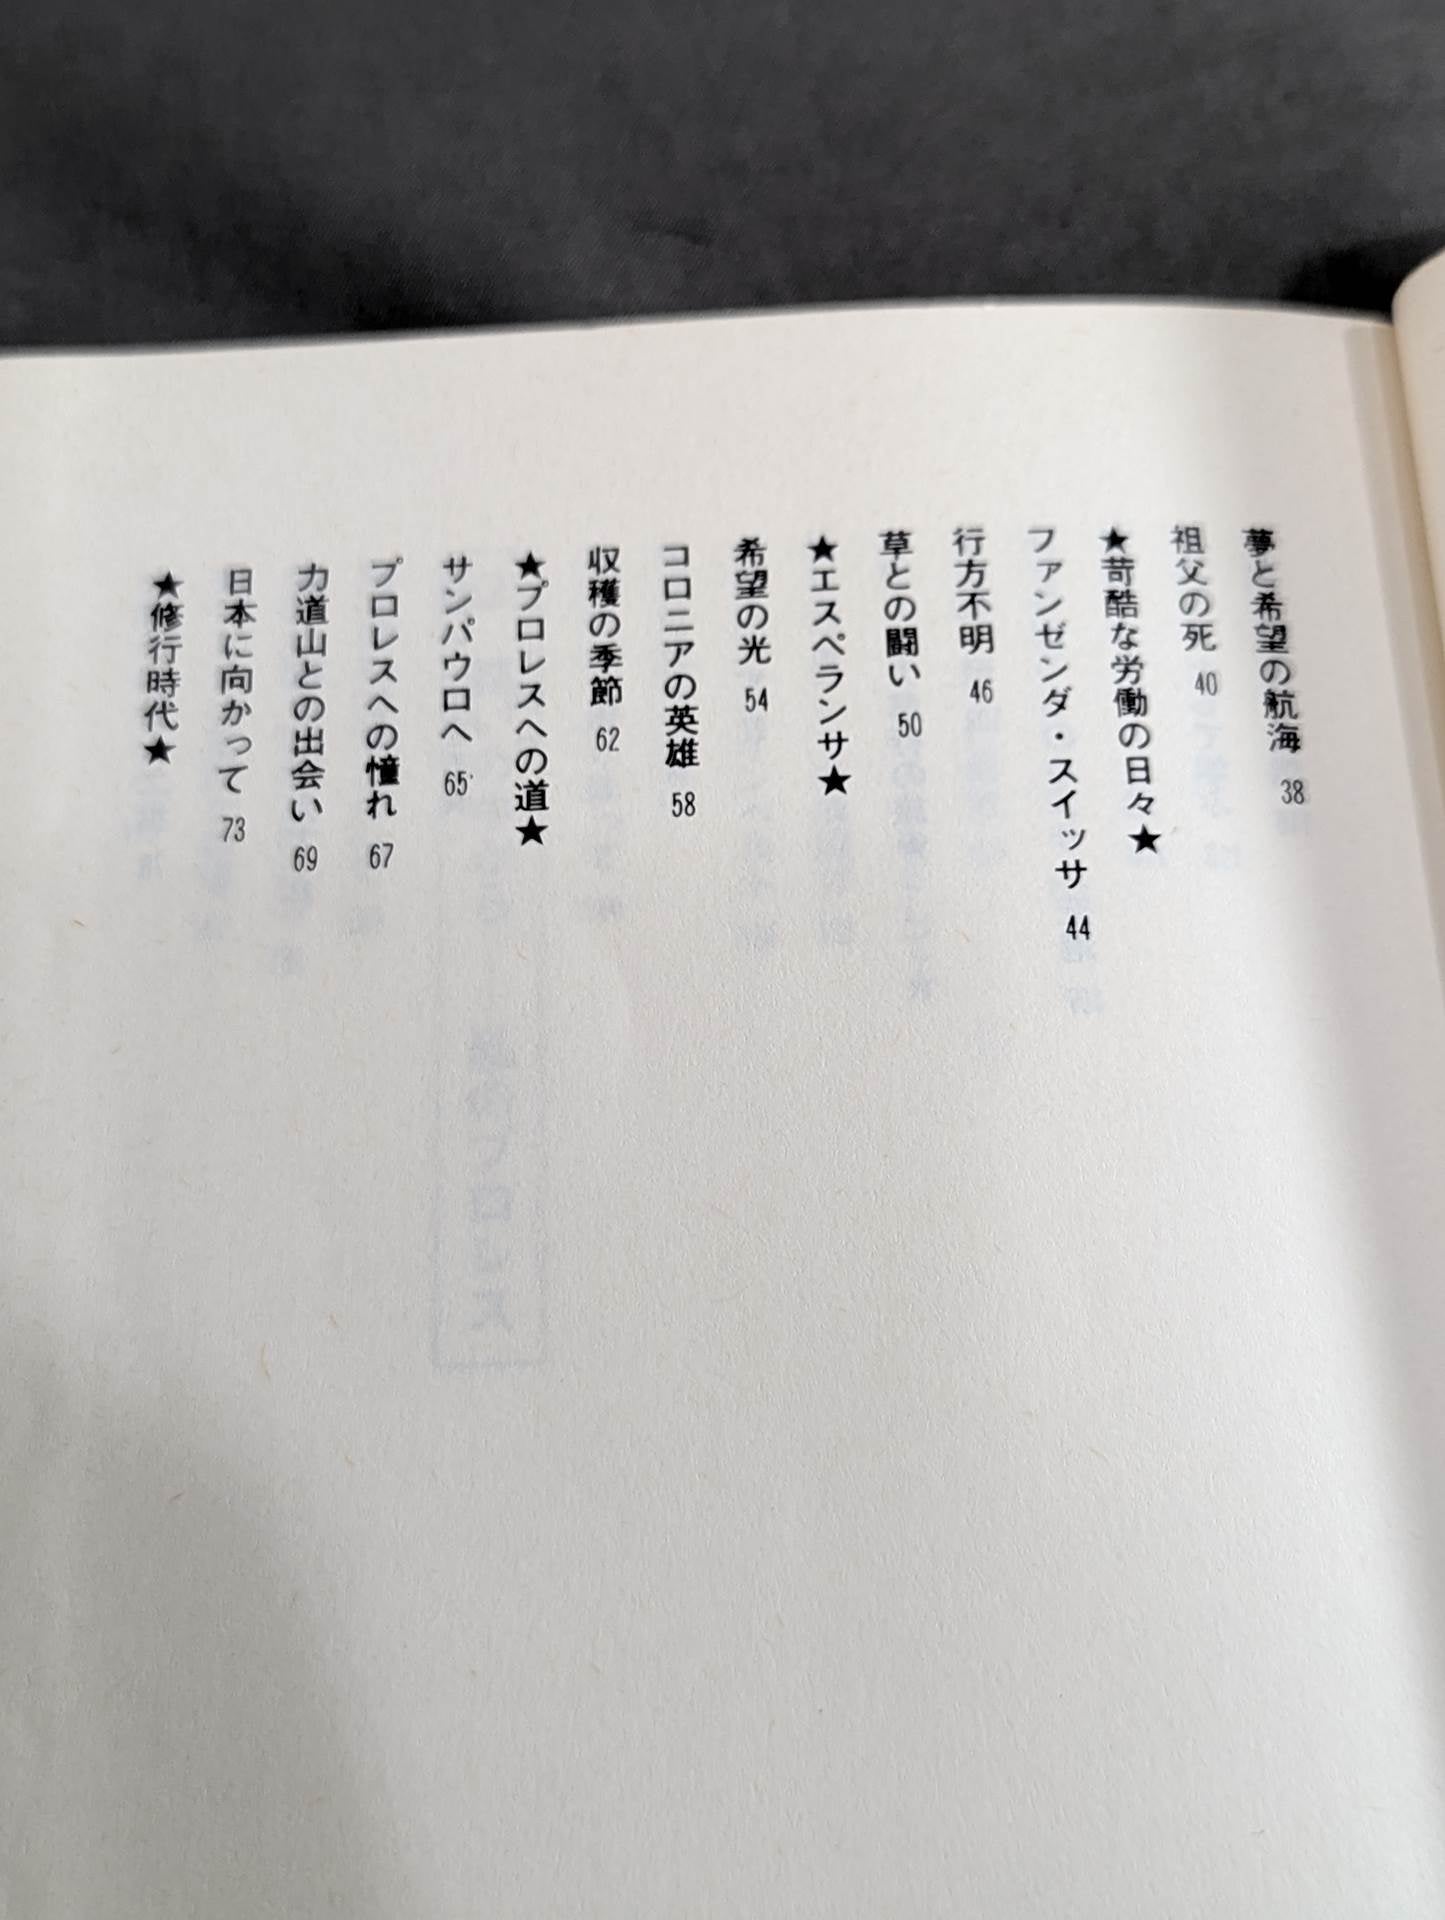 夢と希望の航海 38
祖父の死 40
★苛酷な労働の日々★
ファンゼンダ・スイッサ 44
行方不明 46
草との闘い 50
★エスペランサ★
希望の光 54
コロニアの英雄 58
収穫の季節 62
★プロレスへの道★
サンパウロへ 65
プロレスへの憧れ 67
力道山との出会い 69
日本に向かって 73
★修行時代★